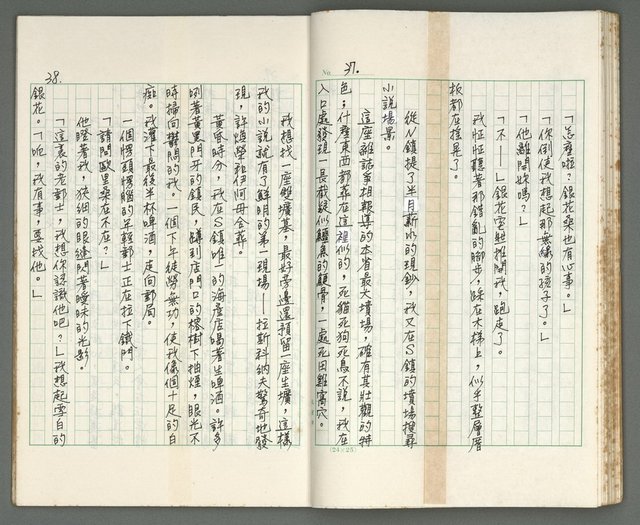 No. 37.
「怎麼啦？銀花桑也有心事。」
「你倒使我想起那無緣的孩子了。」
「他離開妳嗎？」
「不—」銀花霍然推開我，跑走了。
我怔怔聽著那錯亂的腳步，踩在木梯上，似乎整層厝
板都在搖晃了。
從N鎮提了半月薪水的現鈔，我又在S鎮的墳場搜尋
小說場景。
這座雜誌爭相報導的本省最大墳場，確有其壯觀的特
色；什麼東西都葬在這裡似的，死貓死狗死鳥不說，我在
入口處發現一長截疑似鱷魚的顎骨，一處死田雞窩穴。
(24×25)
38.
我想找一座雙壙墓，最好旁邊還預留一座生壙，這樣
我的小說就有了鮮明的第一現場——拉斯科納夫驚奇地發
現，許煌榮和伊阿母合葬。
黃昏時分，我在S鎮唯一的海產店喝著生啤酒。許多
咧著黃黑門牙的鎮民，蹲到店門口的榕樹下抽煙，眼光不
時掃向鬱悶的我。一個下午徒勞無功，使我像個十足的白
痴。我灌下最後半杯啤酒，走向郵局。
一個愣頭愣腦的年輕郵士正在拉下鐵門。
「請問歐里桑在不在？」
他瞪著我，狹細的眼縫閃著曖昧的光影。
「這裏的老郵士，我想你認識他吧？」我想起雪白的
銀花。「呃，我有事，要找他。」